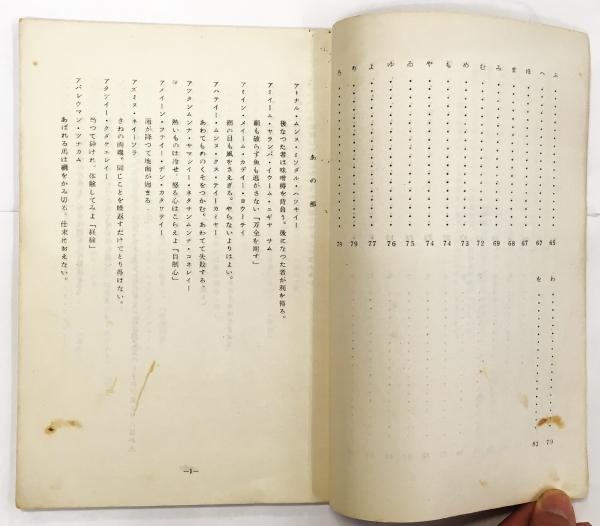 ふ・・・・・・・・・・65
へ・・・・・・・・・・67
ほ・・・・・・・・・・67
ま・・・・・・・・・・68
み・・・・・・・・・・69
む・・・・・・・・・・72
め・・・・・・・・・・73
も・・・・・・・・・・74
や・・・・・・・・・・74
ゐ・・・・・・・・・・75
ゆ・・・・・・・・・・76
よ・・・・・・・・・・77
り・・・・・・・・・・79
る・・・・・・・・・・79
わ・・・・・・・・・・79
を・・・・・・・・・・81
あの部
アトナル・ムンヌ・ミソダル・ハツキイー
後になつた者は味噌樽を背負う。後になつた者が利を得る。
アミイーム・ヤランバ・イウーム・ニギヤ サム
網も破らず魚も逃がさない「万全を期す」
アミイン・メイーム・カデイー・ヨウーテイ
雨の日も風をさえぎる。やらないよりはよい。
アハテイー・ムンヌ・クス・テイーカミヤー
あわてものゝくそをつかむ。あわてて失敗する。
アツタンムンナ・サマシイー・ネタサンムンナ・コネレイー
熱いものは冷せ、怒る心はこらえよ「自制心」
アメイーン・フテイー・デン・カタマテイー
雨が降つて地面が固まる
アズミヌ・ネイーソラ
きねの両端。同じことを繰返すだけでとり得けない。
アタテイー・クダケエレイー
当つて砕けれ、体験してみよ「経験」
アバレウマン・ツナカム
あばれる馬は綱をかみ切る。仕末におえない。
—1—